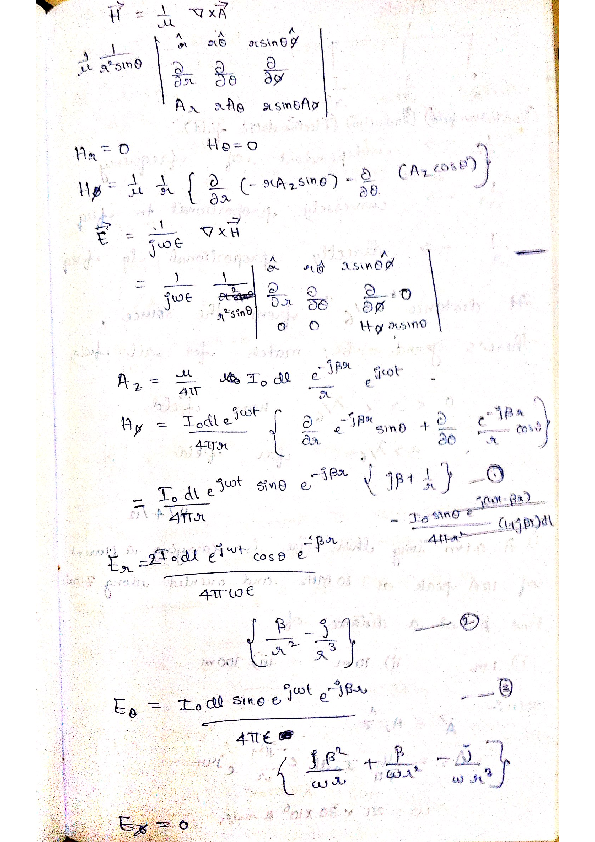 H⃗ = 1/μ ∇×A⃗
1/μ 1/r²sinθ | r̂ rθ̂ rsinθφ̂ |
| ∂/∂r ∂/∂θ ∂/∂φ |
| Ar rAθ rsinθAφ |
Hr = 0 Hθ = 0
Hφ = 1/μ 1/r { ∂/∂r (-rAz sinθ) - ∂/∂θ (Az cosθ) }
E⃗ = 1/jωϵ ∇×H⃗
= 1/jωϵ 1/r²sinθ | r̂ rθ̂ rsinθφ̂ |
| ∂/∂r ∂/∂θ ∂/∂φ=0 |
| 0 0 Hφ rsinθ |
Az = μ/4π I₀ dl e^-jβr/r e^jωt
Hφ = I₀dl e^jωt/4πr { ∂/∂r e^-jβr sinθ + ∂/∂θ e^-jβr/r cosθ }
= I₀ dl e^jωt sinθ e^-jβr/4πr { jβ + 1/r } — ①
- I₀ sinθ e^j(ωt-βr)/4πr² (1+jβr)dl
Er = 2I₀dl e^jωt cosθ e^-jβr/4πωϵ
{ β/r² - j/r³ } — ②
Eθ = I₀dl sinθ e^jωt e^-jβr/4πϵ — ③
{ jβ²/ωr + β/ωr² - j/ωr³ }
Eφ = 0